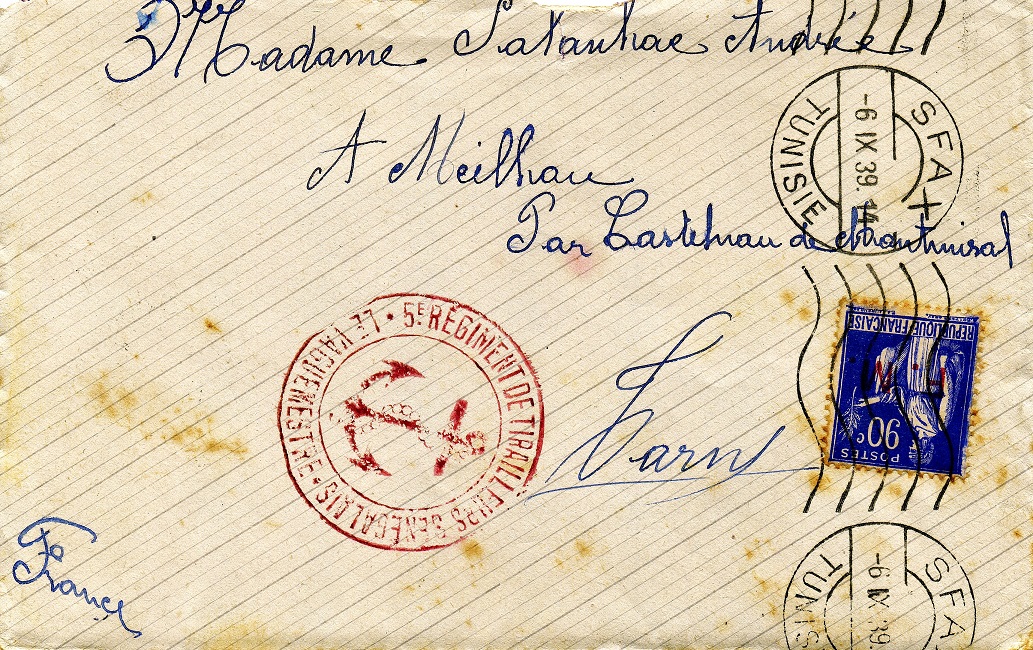 Madame Satanhac Andrée
A Meilhau
Par Castelnau de Montmiral
Tarn
France
SFAX
-6 IX 39.14
TUNISIE
5E REGIMENT DE TIRAILLEURS SENEGALAIS
LE VAGUEMESTRE
REPUBLIQUE FRANÇAISE
F.M
90 c
POSTES
SFA
-6 IX 39.
TUNIS